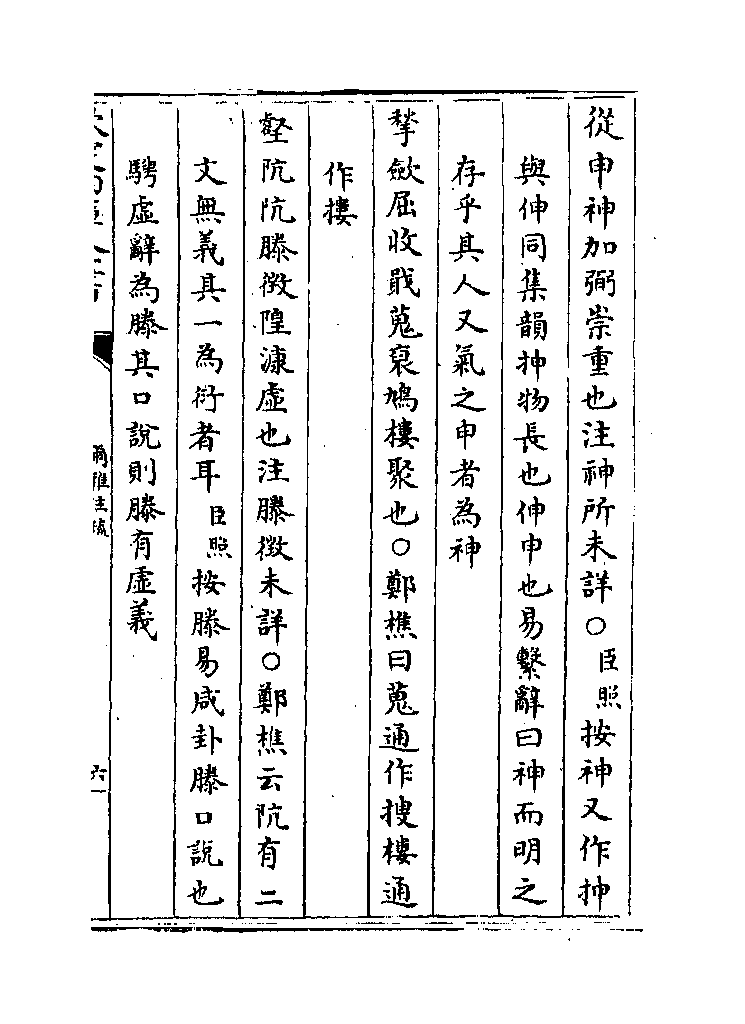 從申神加弼崇重也注神所未詳○臣照按神又作抻
與伸同集韻抻物長也伸申也易繫辭曰神而明之
存乎其人又氣之申者為神
揫歛屈收戢蒐裒鳩樓聚也○鄭樵曰蒐通作搜樓通
作摟
壑阬阬滕徵隍漮虛也注滕徵未詳○鄭樵云阬有二
文無義其一為衍者耳臣照按滕易咸卦滕口說也
騁虛辭為滕其口說則滕有虛義
爾雅注疏
六